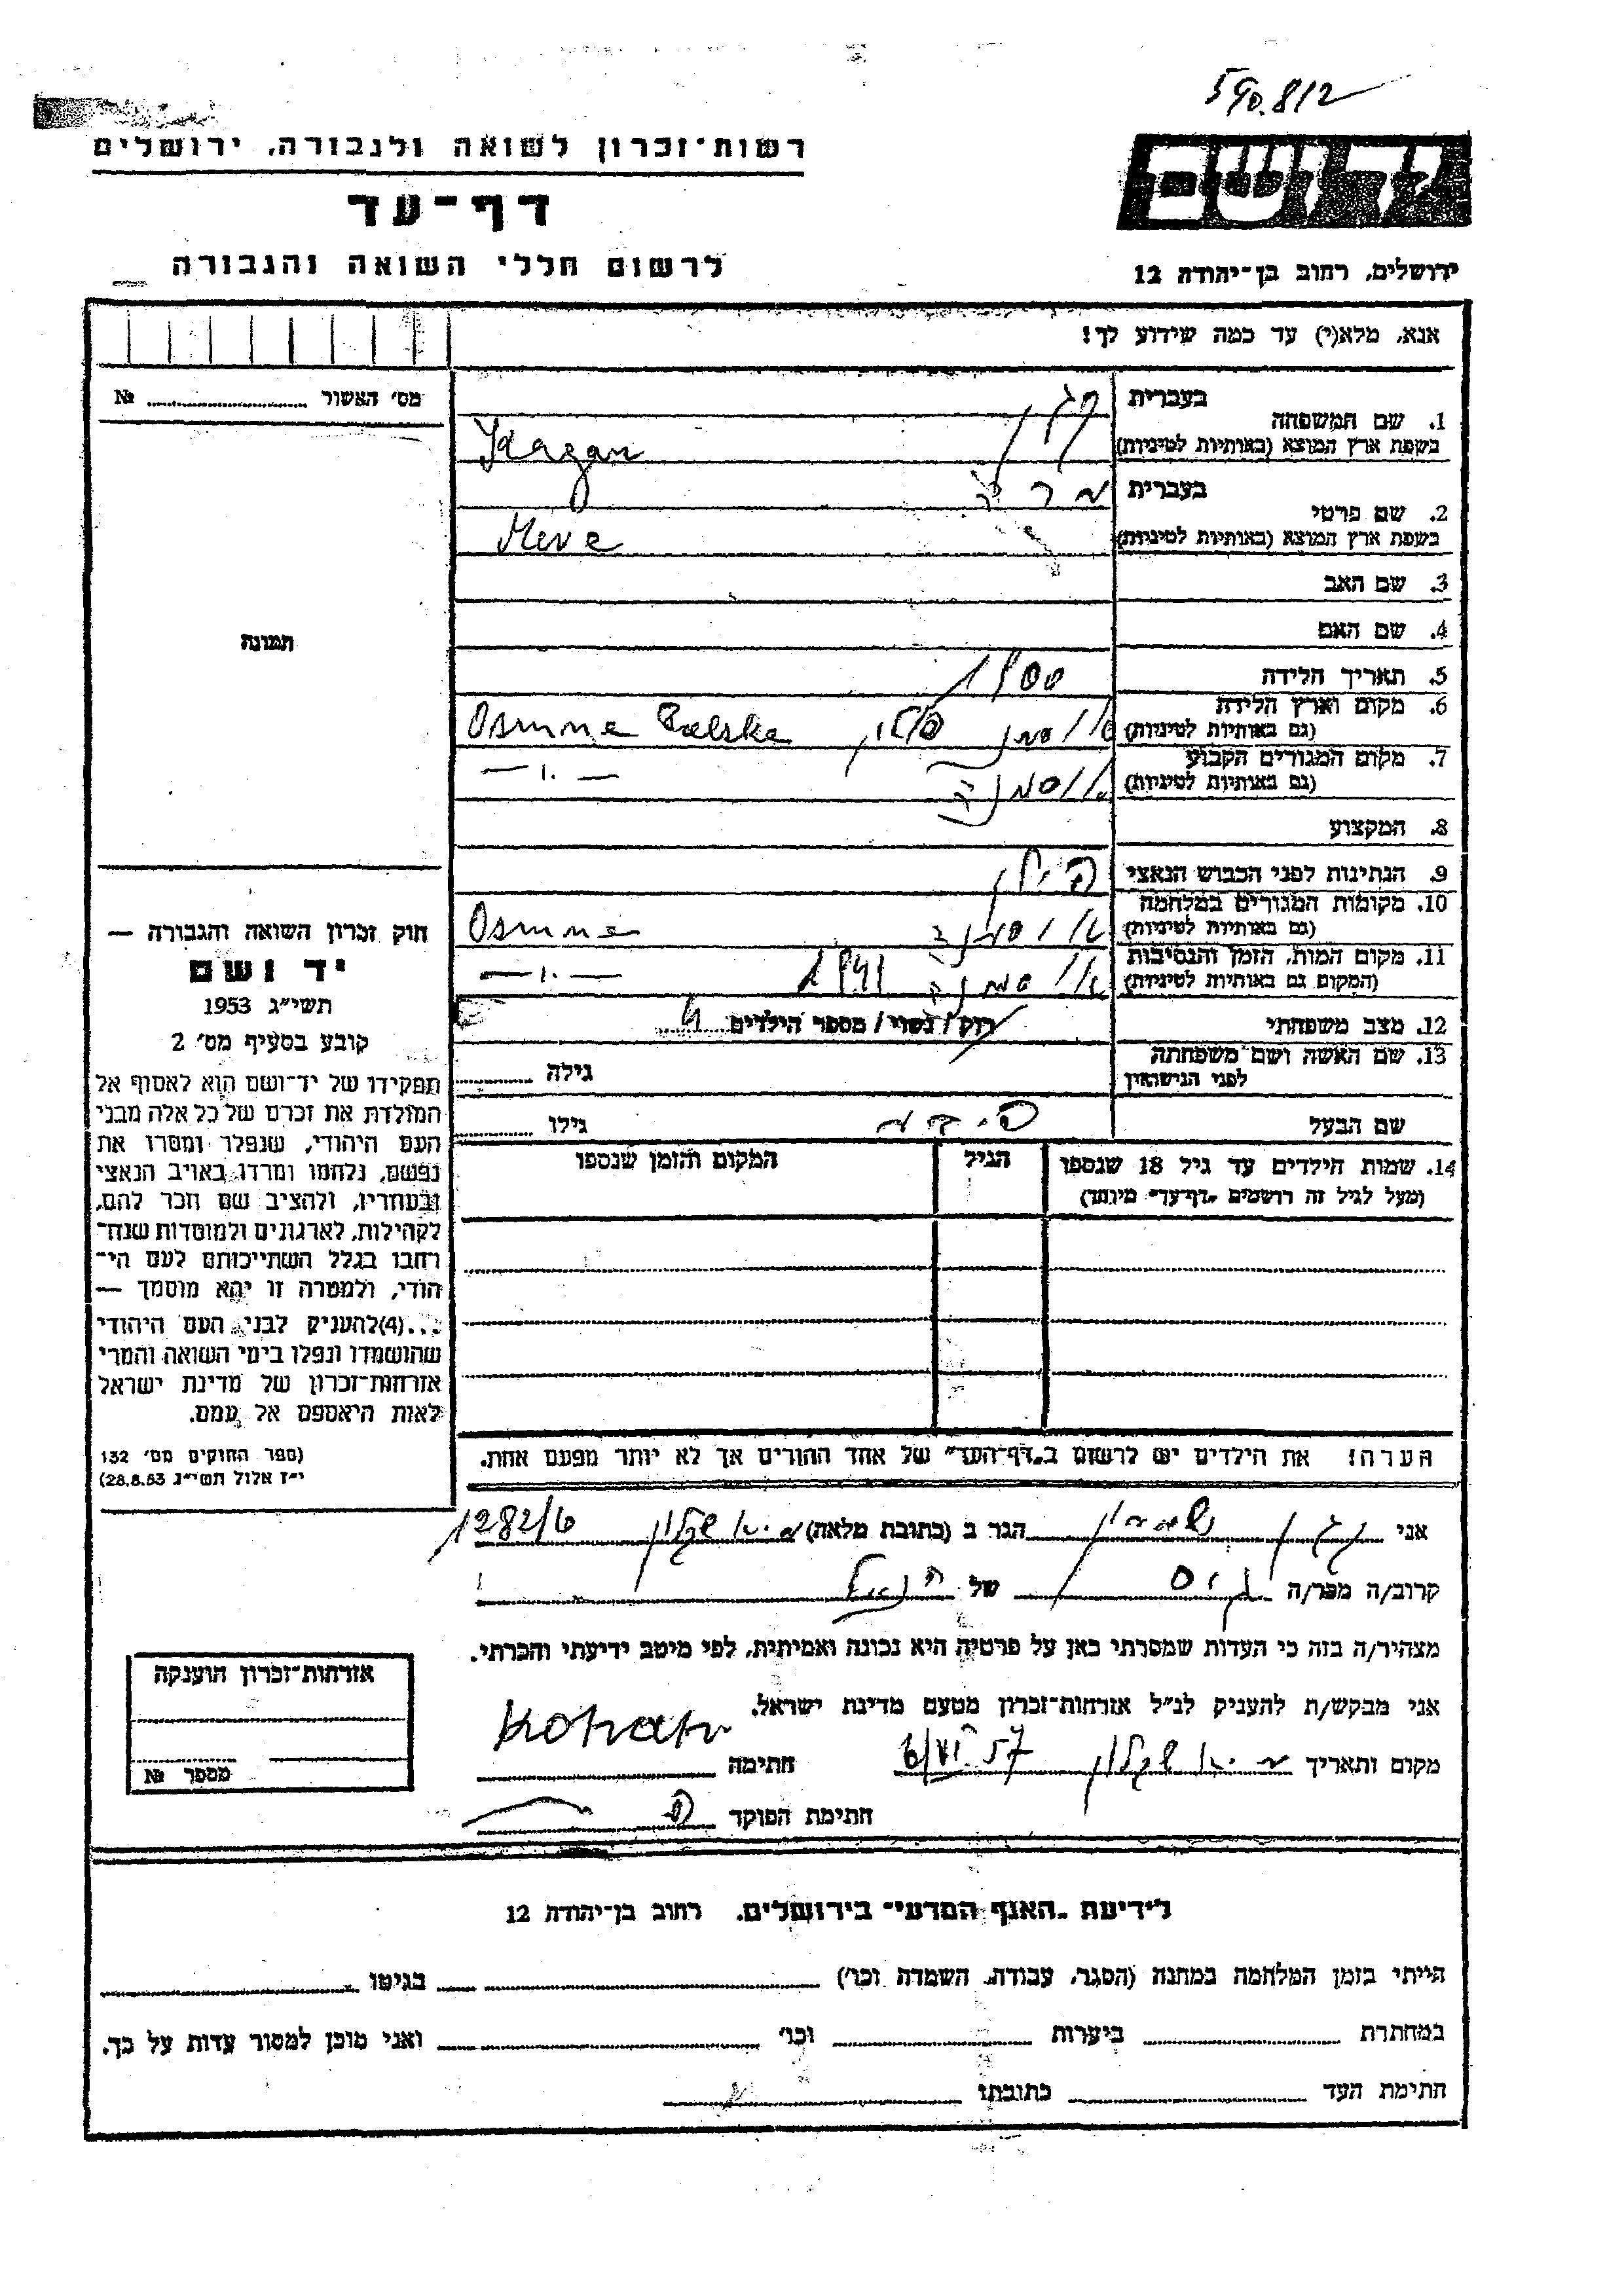 590.812
רשות־זכרון לשואה ולגבורה, ירושלים
דף־עד
לרשום חללי השואה והגבורה
ידושם
ירושלים, רחוב בן־יהודה 12
אנא, מלא(י) עד כמה שידוע לך!
מס׳ האשור № 
תמונה
חוק זכרון השואה והגבורה —
יד ושם
תשי״ג 1953
קובע בסעיף מס׳ 2
תפקידו של יד־ושם הוא לאסוף אל
המולדת את זכרם של כל אלה מבני
העם היהודי, שנפלו ומסרו את
נפשם, נלחמו ומרדו באויב הנאצי
ובעוזריו, ולהציב שם וזכר להם,
לקהילות, לארגונים ולמוסדות שנח־
רבו בגלל השתייכותם לעם הי־
הודי, ולמטרה זו יהא מוסמך —
...(4)להעניק לבני העם היהודי
שהושמדו ונפלו בימי השואה והמרי
אזרחות־זכרון של מדינת ישראל
לאות היאספם אל עמם.
(ספר החוקים מס׳ 132
י״ז אלול תשי״ג 28.8.53)
1. שם המשפחה בעברית
בשפת ארץ המוצא (באותיות לטיניות) Kagan
2. שם פרטי בעברית
בשפת ארץ המוצא (באותיות לטיניות)
3. שם האב
4. שם האם
5. תאריך הלידה 1900
6. מקום וארץ הלידה
(גם באותיות לטיניות) פולין
7. מקום המגורים הקבוע
(גם באותיות לטיניות) — ״ —
8. המקצוע
9. הנתינות לפני הכבוש הנאצי פולין
10. מקומות המגורים במלחמה
(גם באותיות לטיניות)
11. מקום המות, הזמן והנסיבות
(המקום גם באותיות לטיניות) 1941 — ״ —
12. מצב משפחתי רוק / נשוי / מספר הילדים 4
13. שם האשה ושם משפחתה
לפני הנישואין גילה
שם הבעל גילו
14. שמות הילדים עד גיל 18 שנספו
(מעל לגיל זה רושמים „דף־עד״ מיוחד) הגיל המקום והזמן שנספו
הערה! את הילדים יש לרשום ב„דף־העד״ של אחד ההורים אך לא יותר מפעם אחת.
אני הגר ב (כתובת מלאה) 1282/6
קרוב/ה מכר/ה גיס של הנ״ל
מצהיר/ה בזה כי העדות שמסרתי כאן על פרטיה היא נכונה ואמיתית, לפי מיטב ידיעתי והכרתי.
אני מבקש/ת להעניק לנ״ל אזרחות־זכרון מטעם מדינת ישראל.
מקום ותאריך 6/VI 57 חתימה
חתימת הפוקד
אזרחות־זכרון הוענקה
מספר №
לידיעת „האגף המדעי״ בירושלים, רחוב בן־יהודה 12
הייתי בזמן המלחמה במחנה (הסגר, עבודה, השמדה וכו׳) בגיטו
במחתרת ביערות וכו׳ ואני מוכן למסור עדות על כך.
חתימת העד כתובתו